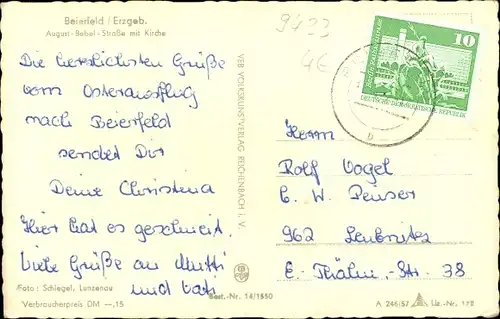 Beierfeld / Erzgeb.
August-Bebel-Straße mit Kirche
Die herzlichsten Grüße
vom Osterausflug
nach Beierfeld
sendet Dir
Deine Christina
Hier hat es geschneit.
Viele Grüße an Mutti
und Vati
Foto: Schlegel, Lunzenau
Verbraucherpreis DM --,15
Best.-Nr. 14/1550
VEB VOLKSKUNSTVERLAG REICHENBACH i. V.
9433
10
DEUTSCHE DEMOKRATISCHE REPUBLIK
Herrn
Rolf Vogel
b. W. Penser
962 Leubnitz
E.-Thälm.-Str. 38
A 246/57
Liz.-Nr.